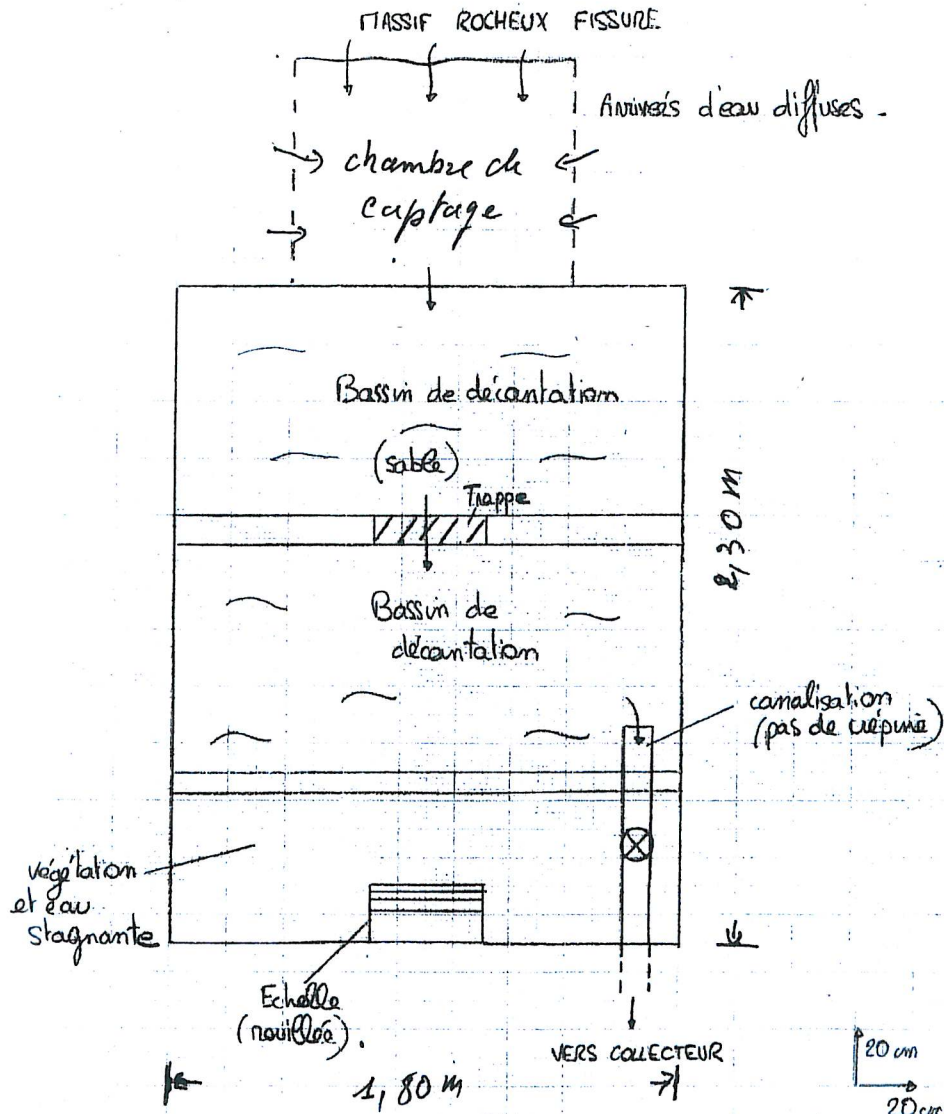 MASSIF ROCHEUX FISSURE
Arrivées d'eau diffuses.
chambre de
captage
Bassin de décantation
(sable)
Trappe
2,30 m
Bassin de
décantation
canalisation
(pas de crépine)
végétation
et eau
stagnante
Echelle
(rouillée).
VERS COLLECTEUR
1,80 m
20 cm
20 cm